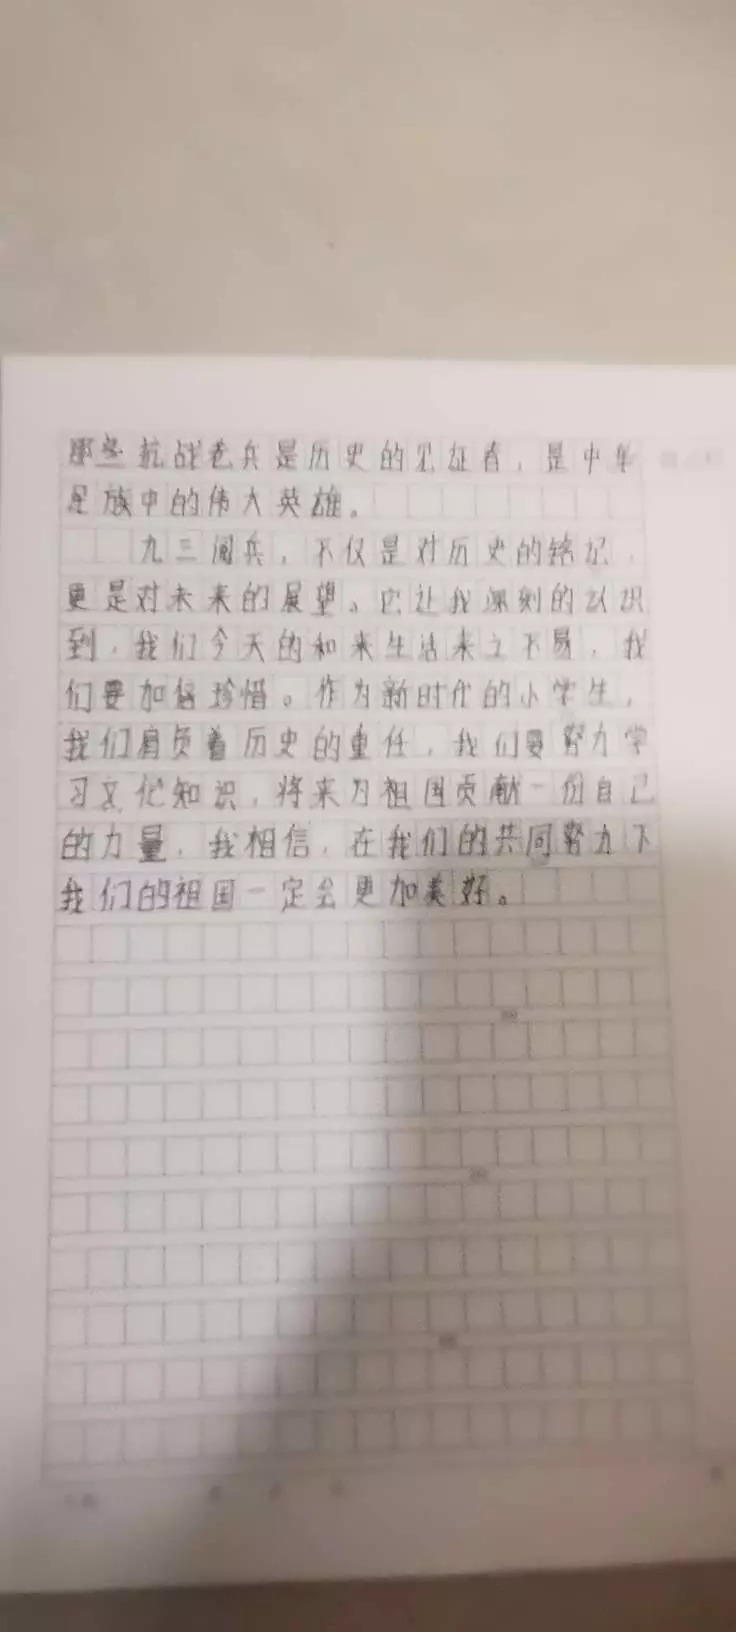 那些抗战老兵是历史的见证者，是中华
民族中的伟大英雄。
九三阅兵，不仅是对历史的铭记，
更是对未来的展望。它让我深刻的认识
到，我们今天的和来生活来之不易，我
们要加倍珍惜。作为新时代的小学生，
我们肩负着历史的重任，我们要努力学
习文化知识，将来为祖国贡献一份自己
的力量，我相信，在我们的共同努力下
我们的祖国一定会更加美好。